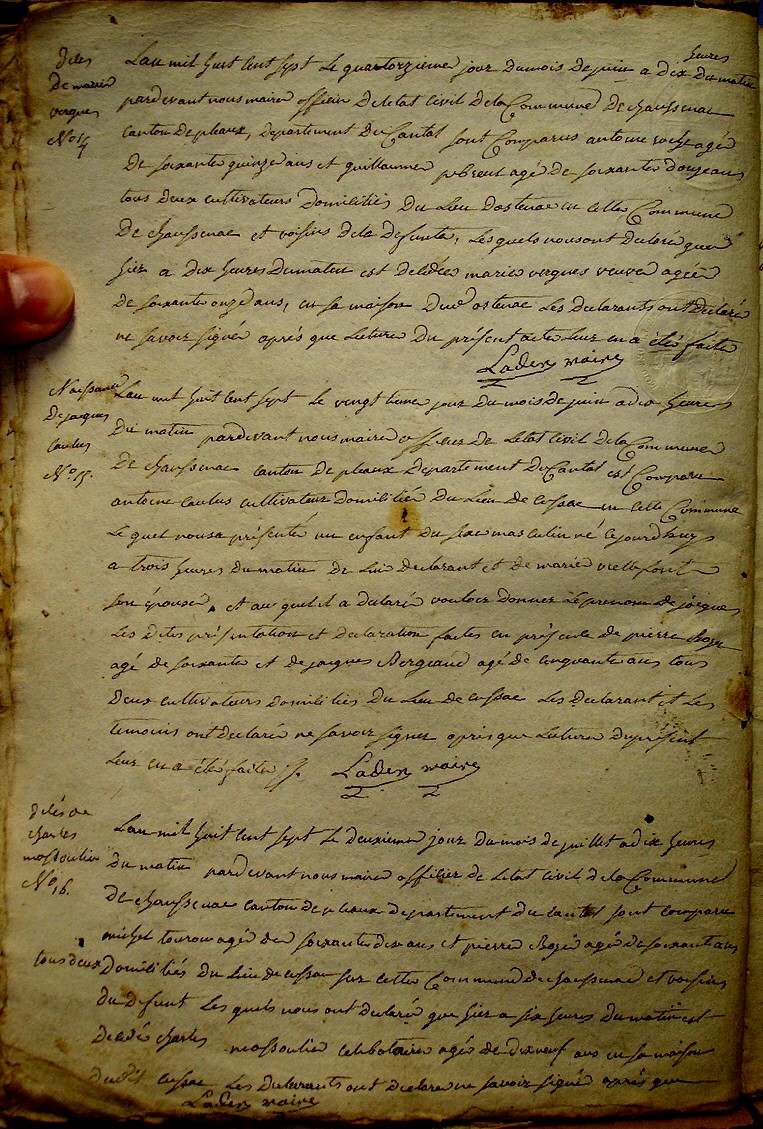 déces
De marie
vergnes
No 14
heures
Lan mil huit cent sept le quatorzieme jour du mois de juin a dix du matin
pardevant nous maire officier De letat Civil de la Commune De chaussenac
canton de pleaux, Departement Du Cantal sont Comparus antoine agé
De soixante quinze ans et guillaume agé de soixante douze ans
tous deux cultivateurs Domiciliés Du Lieu Dostenac en cette Commune
De chaussenac et voisins de la Defunte, Les quels nous ont Declaré que
hier a dix heures Du matin est decédée marie vergnes veuve agée
De soixante onze ans, en sa maison Dud ostenac Les Declarants ont Declaré
ne savoir signer aprés que Lecture Du présent acte Leur en a été faite
Laden maire
Naissance
De jacques
caulus
No 15.
Lan mil huit cent sept le vingt jour Du mois de juin a dix heures
Du matin pardevant nous maire officier De Letat Civil De la Commune
De chaussenac canton De pleaux Departement Du Cantal est Comparu
antoine caulus cultivateur Domicilié Du Lieu De cussac en cette Commune
Le quel nous a présenté un enfant Du sexe masculin né cejourdhuy
a trois heures Du matin De Lui Declarant et de marie viellefont
son épouse, et au quel il a Declaré vouloir Donner Le prenom De jacques
Les Dites présentation et Declaration faites en présence De pierre
agé De soixante et De jacques Bergeaud agé De cinquante ans tous
Deux cultivateurs Domiciliés Du Lieu De cussac Les Declarant et Les
temoins ont Declaré ne savoir signer aprés que Lecture Du présent
Leur en a été faite Laden maire
décés de
charles
mossoulier
No 16.
Lan mil huit cent sept le Deuxieme jour Du mois de juillet a dix heures
Du matin pardevant nous maire officier De Letat Civil De la Commune
De chaussenac canton De pleaux departement du cantal sont comparu
michel agé De soixante dix ans et pierre agé De soixante ans
tous deux Domiciliés Du Lieu De cussac sur cette Commune De chaussenac et voisins
Du Defunt Les quels nous ont Declaré que hier a six heures Du matin est
Decédé charles mossoulier celibataire agé De dixneuf ans en sa maison
Dudit cussac Les Declarants ont Declaré ne savoir signé aprés que
Laden maire